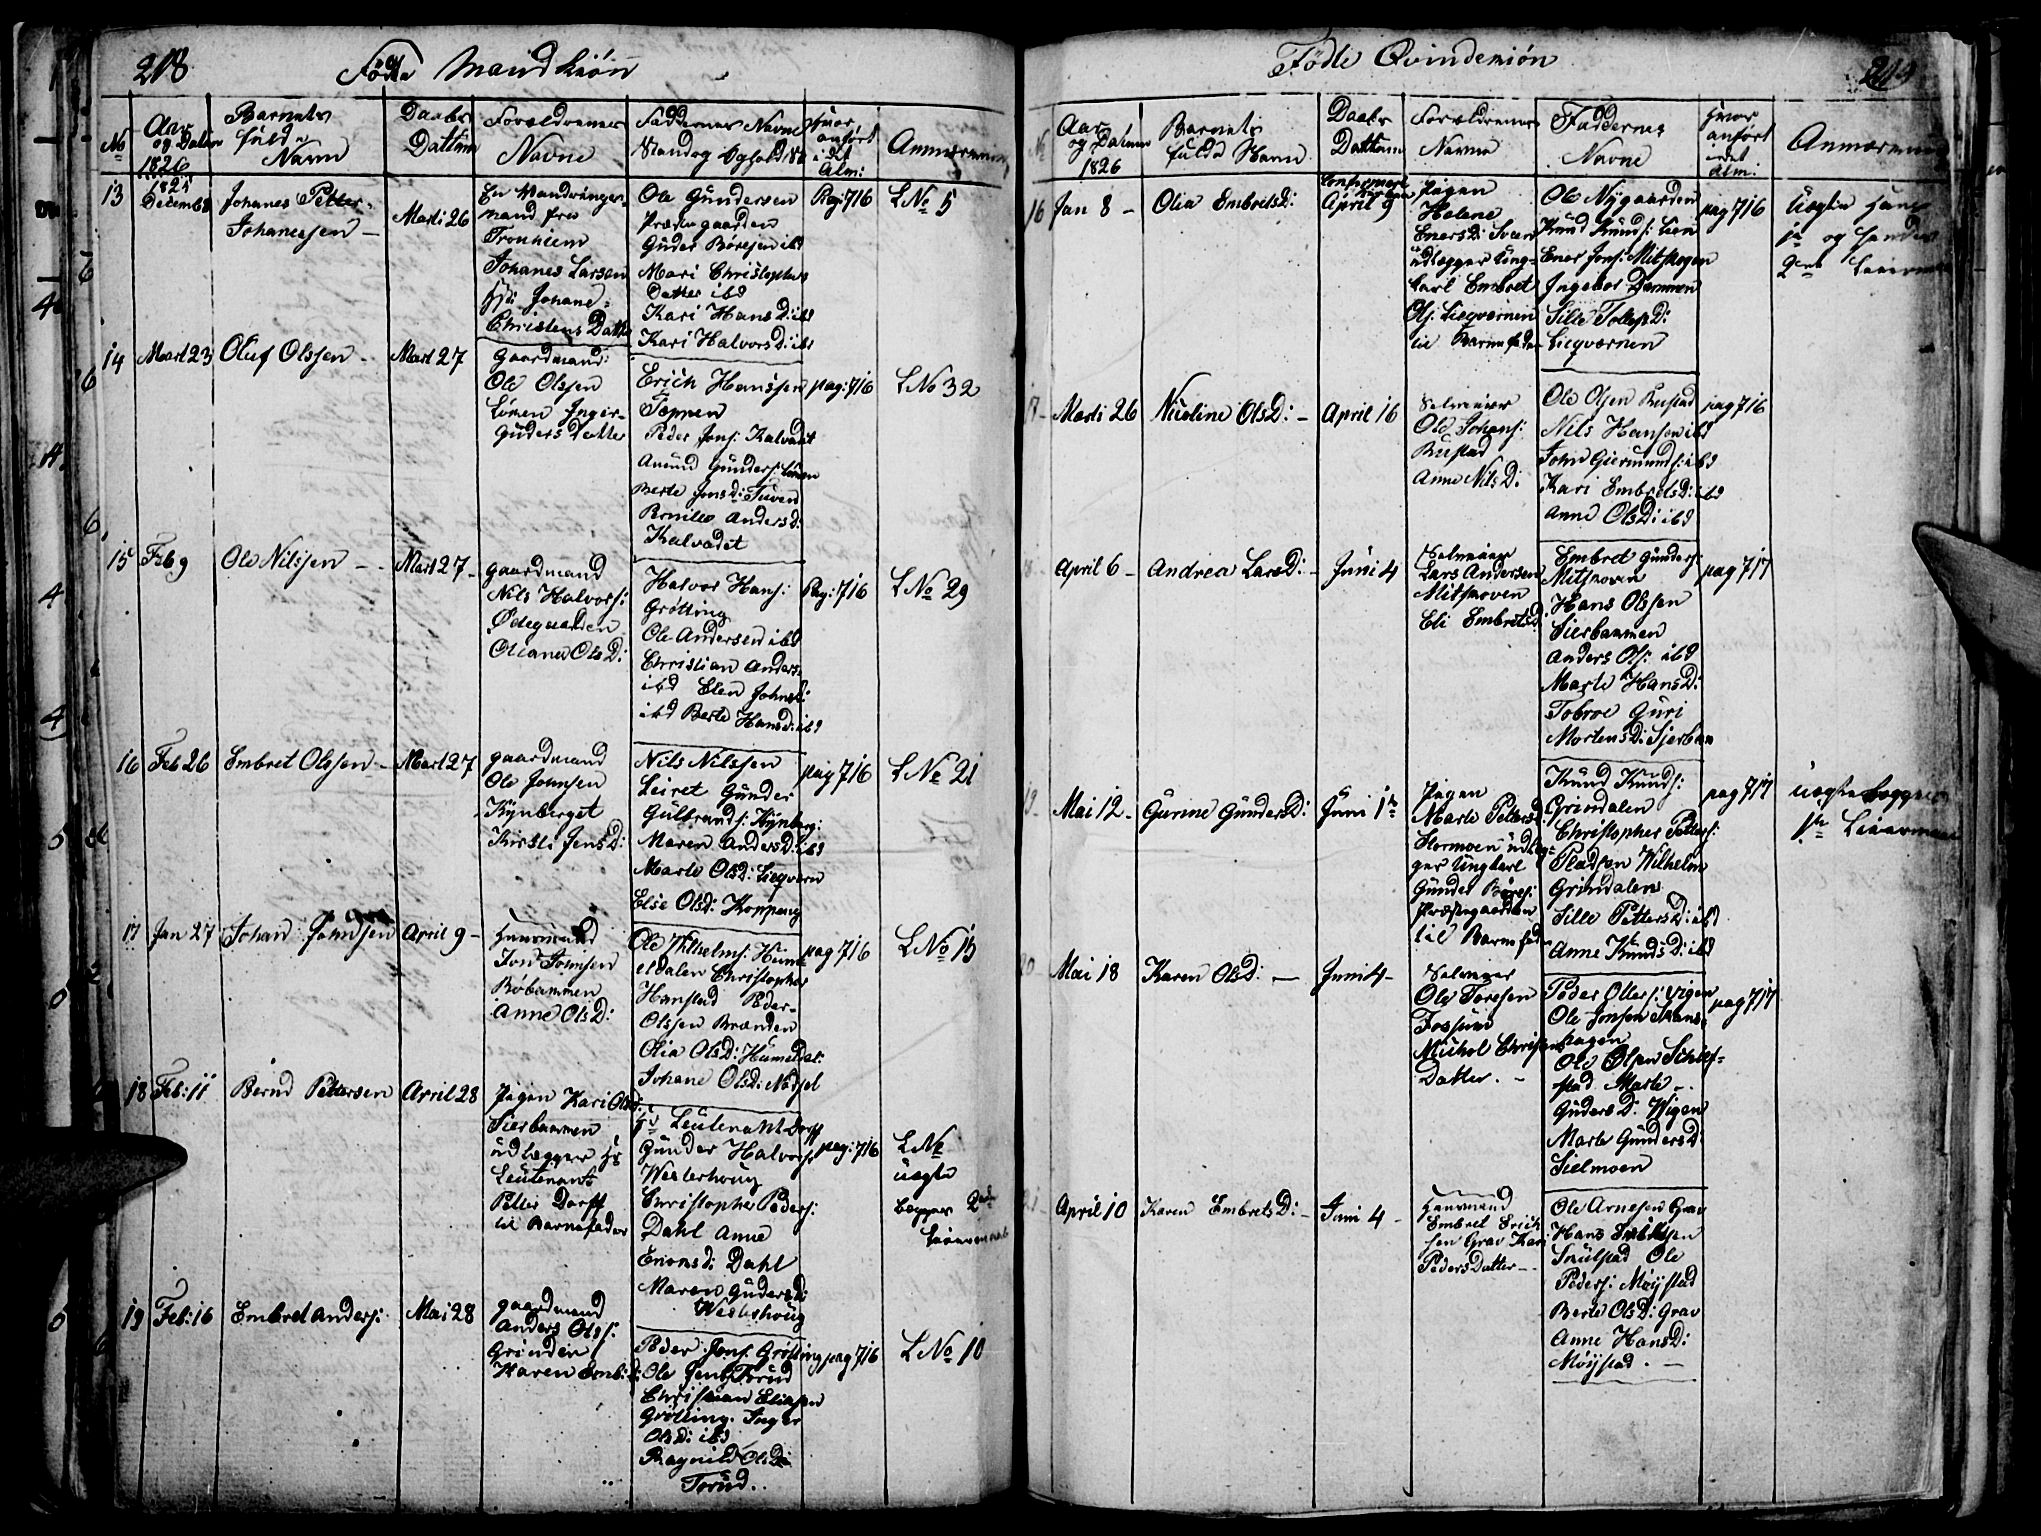 218
Fødte Mandkiøn
No
Aar og Datum 1826
Barnets fulde Navn
Daabs Dattum
Forældrenes Navne
Faddernes Navne Stand og Ophold
Hvor anført i det Alm:
Anmærkning
13
1825 December
Johanes Petter
Johanessen —
Marti 26
En Vandrings-
mand fra
Tronhiem
Johanes Larsen
Johane
Christens Datter
Ole Gundersen
Præstegaarden
Guder Børesen ibd
Mari Christophers
Datter ibd
Kari Hans D: ibd
Kari Halvors D: ibd
Pag: 716
L No 5
14
Mart 23
Oluf Olssen
Mart 27
gaardmand
Ole Olssen
Lømen Inger
Guders Datter
Erich Hanssen
Tøppen
Peder Jons: Kalvadet
Amund Gunders: Lømen
Berte Jons D: Tuven
Pernille Anders d:
Kalvadet
pag: 716
L No 32
15
Feb 9
Ole Nilssen
Mart 27
gaardmand
Nils Halvors:
Ødegaarden
Oleana Ols D:
Halvor Hans:
Grøtting
Ole Andersen ibd
Christian Anders
ibd Elen Johns d:
ibd Berte Hans d: ibd
Pag: 716
L No 29
16
Feb 26
Embret Olssen
Mart 27
gaardmand
Ole Johnsen
Kynberget
Kirsti Jens D:
Nils Nilssen
Leiret Gunder
Gulbrands: Kynberg:
Maren Anders D: ibd
Marte Ols D: Liegvern
Else Ols D: Koppang
pag 716
L No 21
17
Jan 27
Johan Johnsen
April 9
Huusmand
Jon Jonnsen
Røbammen
Anne Ols D:
Ole Wilhelms: Humel
eldalen Christopher
Hanstad Peder
Olssen Brænden
Olia Ols D: Humeldal:
Johane Ols D: Nordset
pag 716
L No 15
18
Feb: 11
Bernd Pettersen
April 28
Pigen Kari Ols d:
Sierbammen
udlægger Hr
Leutenant
Petter Dorff
til Barnefader
Hr Leutenant Dorff
Gunder Halvors:
Westerhoug
Christopher Peders:
Dahl Anne
Enons d: Dahl
Maren Guders d:
Westerhoug
pag: 716
L No
uægte
Begges 2den
Leiermaal
19
Feb: 16
Embret Anders:
Mai 28
gaardmand
Anders Ols:
Grinden
Karen Emb: D:
Peder Jons: Grøtting
Ole Jens: Torud
Christian Eliassen
Grøtting Inger
Ols D: ibd
Ragnild Ols D:
Torud.
pag 716
L No 10
Fødte Qvindekiøn
219
No
Aar og Datum 1826
Barnets fulde Navn
Daabs Dattum
Forældrenes Navne
Faddernes Navne
Hvor anført i det Alm:
Anmærkning
16
Jan 8 —
Olea Embrets D:
April 9
Pigen
Helene
Eners D: Sveen
udlægger Ung-
karl Embret
Ols: Liegvernen
til Barnefader
Ole Nygaarden
Knud Knuds: Lien
Ener Jons: Mitskogen
Ingebor Dammen
Sille Tollefs D:
Liegvernen
pag 716
Uægte Hans
1te og hendes
2den Leiermaal
17
Marti 26
Nicoline Ols D: —
April 16
Selveier
Ole Johans:
Rustad
Anne Nils D:
Ole Olsen Rustad
Nils Hansen ibd
John Giermunds: ibd
Kari Embrets D: ibd
Anne Ols D: ibd
pag 716
18
April 6 —
Andrea Lars D:
Juni 4
Selveier
Lars Andersen
Mitskoven
Eli Embrets D
Embret Gunders:
Mitskoven
Hans Olssen
Sierbammen
Anders Ols: ibd
Marte Hans D:
Tobroe Guri
Mortens D: Sierbam
pag 717
19
Mai 12 —
Gurine Gunders D:
Juni 1te
Pigen
Marte Petters d:
Stormoen udlæg-
ger Ungkarl
Gunder Børes:
Præstegaarden
til Barnefader
Knud Knuds:
Grindalen
Christopher Petters:
Pladsen Wilhelm
Grindalen
Sille Petters D: ibd
Anne Knuds D: ibd
pag 717
uægte begges
1te Leiermaal
20
Mai 18
Karen Ols D: —
Juni 4 —
Selveier
Ole Toresen
Fossum
Michol Christens
Datter. —
Peder Ollers: Vigen
Ole Jonsen Skans-
hagen
Ole Olsen Schief-
stad Marte
Guders D: Wigen
Marte Gunders D
Sielmoen
pag 717
21
April 10
Karen Embrets D: —
Juni 4 —
Huusmand
Embret Erich
sen Grav Kari
Peders Datter —
Ole Arnesen Grav
Hans Embretsen
Snulstad Ole
Peders: Møystad
Berte Ols D: Grav
Anne Hans D:
Møystad. —